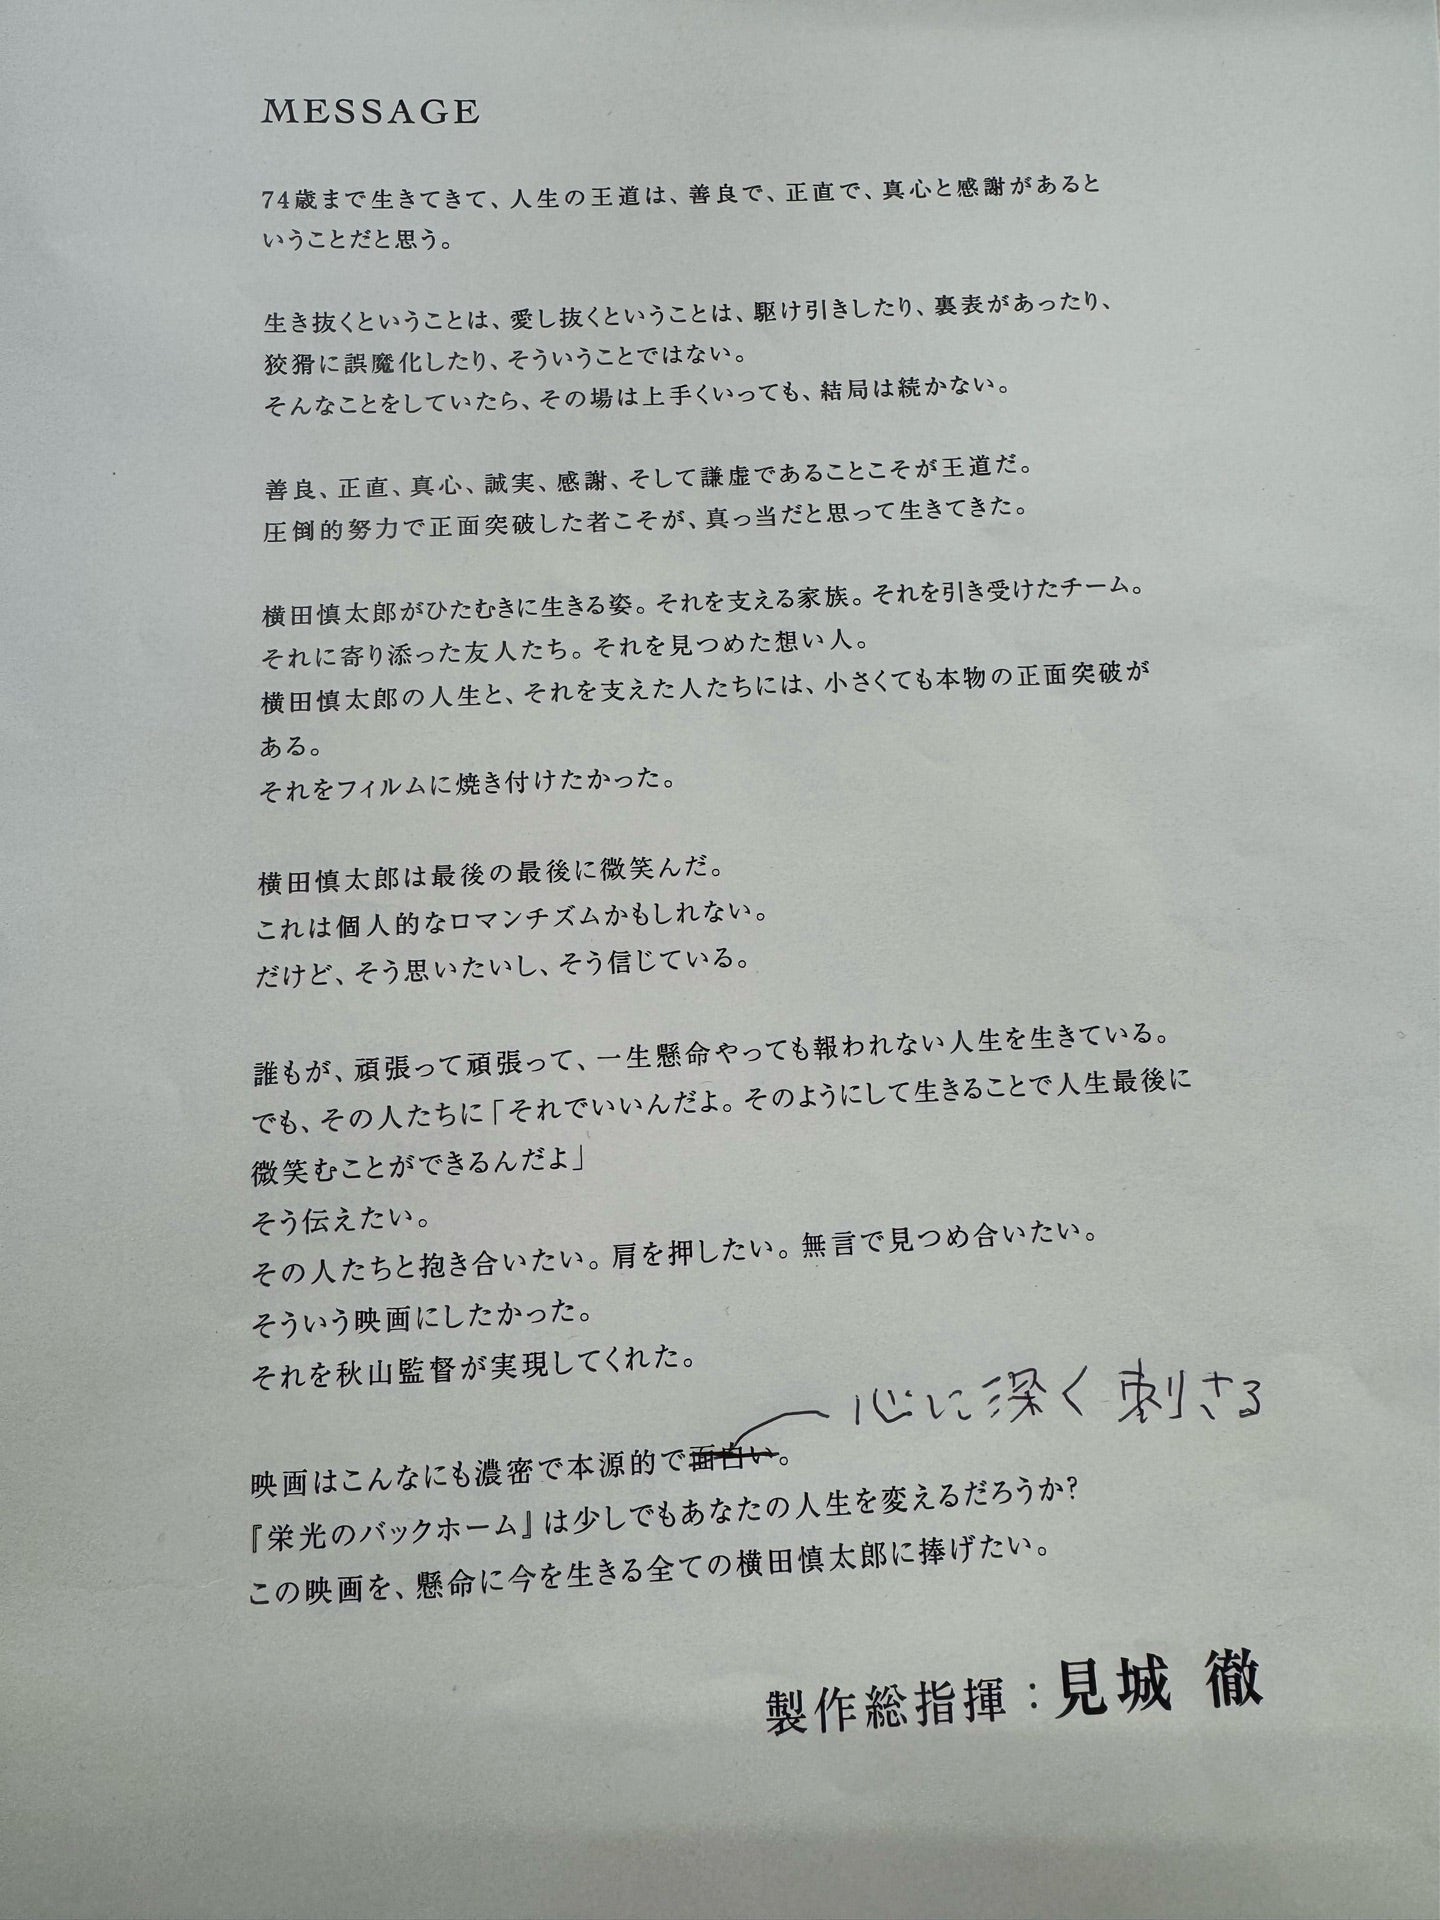 MESSAGE
74歳まで生きてきて、人生の王道は、善良で、正直で、真心と感謝があると
いうことだと思う。
生き抜くということは、愛し抜くということは、駆け引きしたり、裏表があったり、
狡猾に誤魔化したり、そういうことではない。
そんなことをしていたら、その場は上手くいっても、結局は続かない。
善良、正直、真心、誠実、感謝、そして謙虚であることこそが王道だ。
圧倒的努力で正面突破した者こそが、真っ当だと思って生きてきた。
横田慎太郎がひたむきに生きる姿。それを支える家族。それを引き受けたチーム。
それに寄り添った友人たち。それを見つめた想い人。
横田慎太郎の人生と、それを支えた人たちには、小さくても本物の正面突破が
ある。
それをフィルムに焼き付けたかった。
横田慎太郎は最後の最後に微笑んだ。
これは個人的なロマンチズムかもしれない。
だけど、そう思いたいし、そう信じている。
誰もが、頑張って頑張って、一生懸命やっても報われない人生を生きている。
でも、その人たちに「それでいいんだよ。そのようにして生きることで人生最後に
微笑むことができるんだよ」
そう伝えたい。
その人たちと抱き合いたい。肩を押したい。無言で見つめ合いたい。
そういう映画にしたかった。
それを秋山監督が実現してくれた。
心に深く刺さる
映画はこんなにも濃密で本源的で面白い。
『栄光のバックホーム』は少しでもあなたの人生を変えるだろうか?
この映画を、懸命に今を生きる全ての横田慎太郎に捧げたい。
製作総指揮:見城 徹